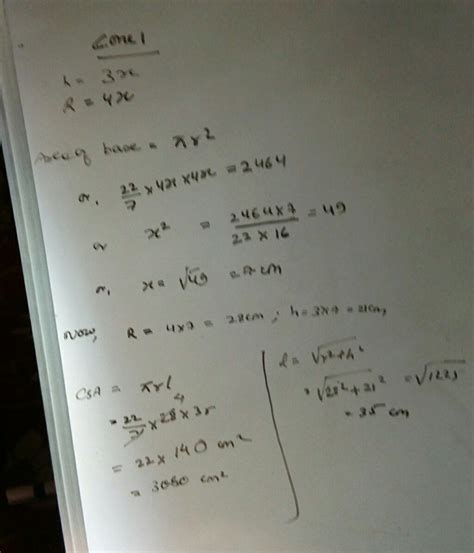 Cone 1
h = 3x
R = 4x
Area of base = πr²
or, 22/7 × 4x × 4x = 2464
or x² = 2464 × 7 / 22 × 16 = 49
or, x = √49 = 7 cm
Now, R = 4×7 = 28cm ; h = 3×7 = 21cm,
CSA = πrl
= 22/7 × 28 4 × 35
= 22 × 140 cm²
= 3080 cm²
l = √r²+h²
= √28²+21² = √1225
= 35 cm